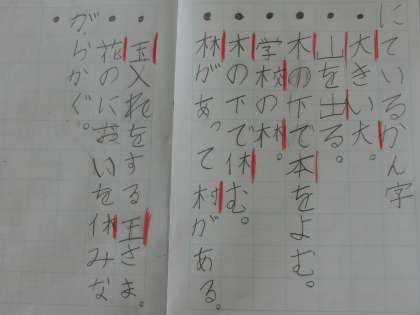 にているかん字
大きい犬。
山を出る。
木の下で本をよむ。
学校の林。
木の下で休む。
林があって村がある。
玉入れをする王さま。
花のにおいを休みな
がらかぐ。